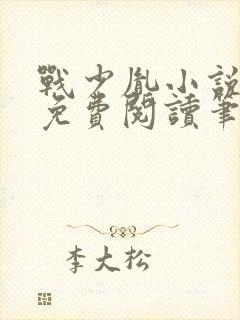 戰少胤小說
免費閱讀筆
李大松